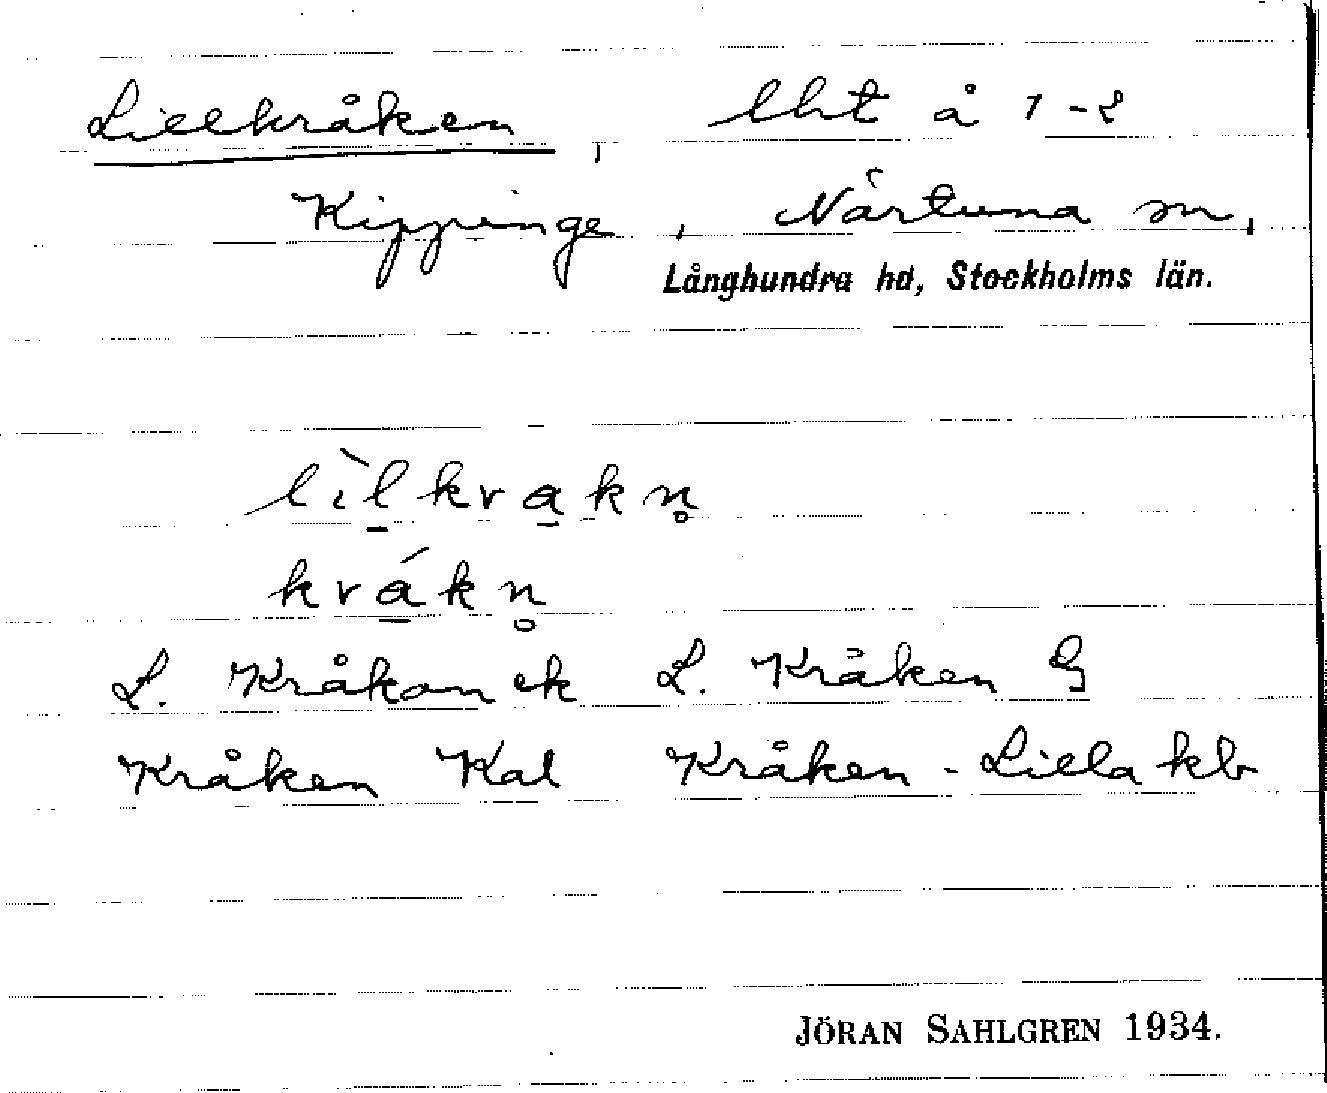 Lillkråken, lht å 1-2
Kippinge, Närtuna sn,
Långhundra hd, Stockholms län.
lìl̠kra̠kn̥
krá̠kn̥
L. Kråkan ek L. Kråken G
Kråken Kal Kråken-Lilla kb
JÖRAN SAHLGREN 1934.